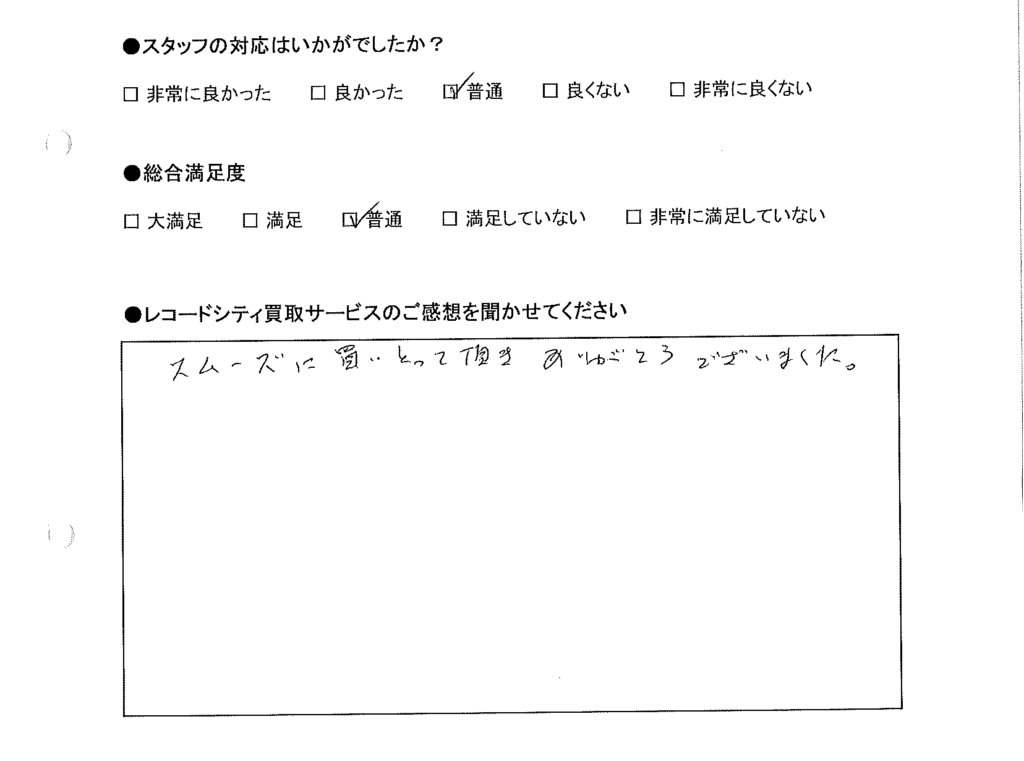 ●スタッフの対応はいかがでしたか？
□ 非常に良かった □ 良かった ☑ 普通 □ 良くない □ 非常に良くない
●総合満足度
□ 大満足 □ 満足 ☑ 普通 □ 満足していない □ 非常に満足していない
●レコードシティ買取サービスのご感想を聞かせてください
スムーズに買いとって頂きありがとうございました。